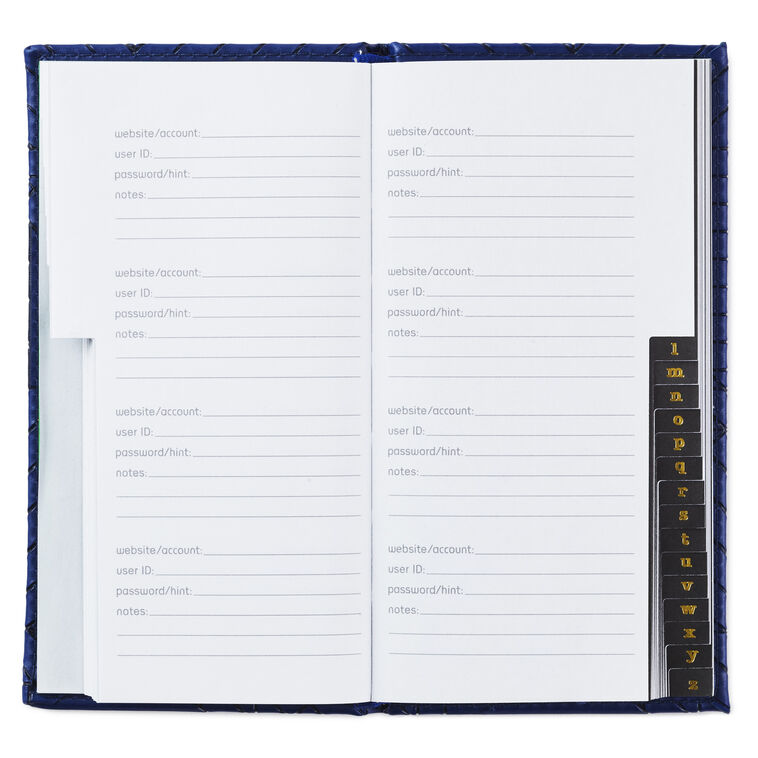 website/account:
user ID:
password/hint:
notes:
website/account:
user ID:
password/hint:
notes:
website/account:
user ID:
password/hint:
notes:
website/account:
user ID:
password/hint:
notes:
website/account:
user ID:
password/hint:
notes:
website/account:
user ID:
password/hint:
notes:
website/account:
user ID:
password/hint:
notes:
website/account:
user ID:
password/hint:
notes:
l
m
n
o
p
q
r
s
t
u
v
w
x
y
z